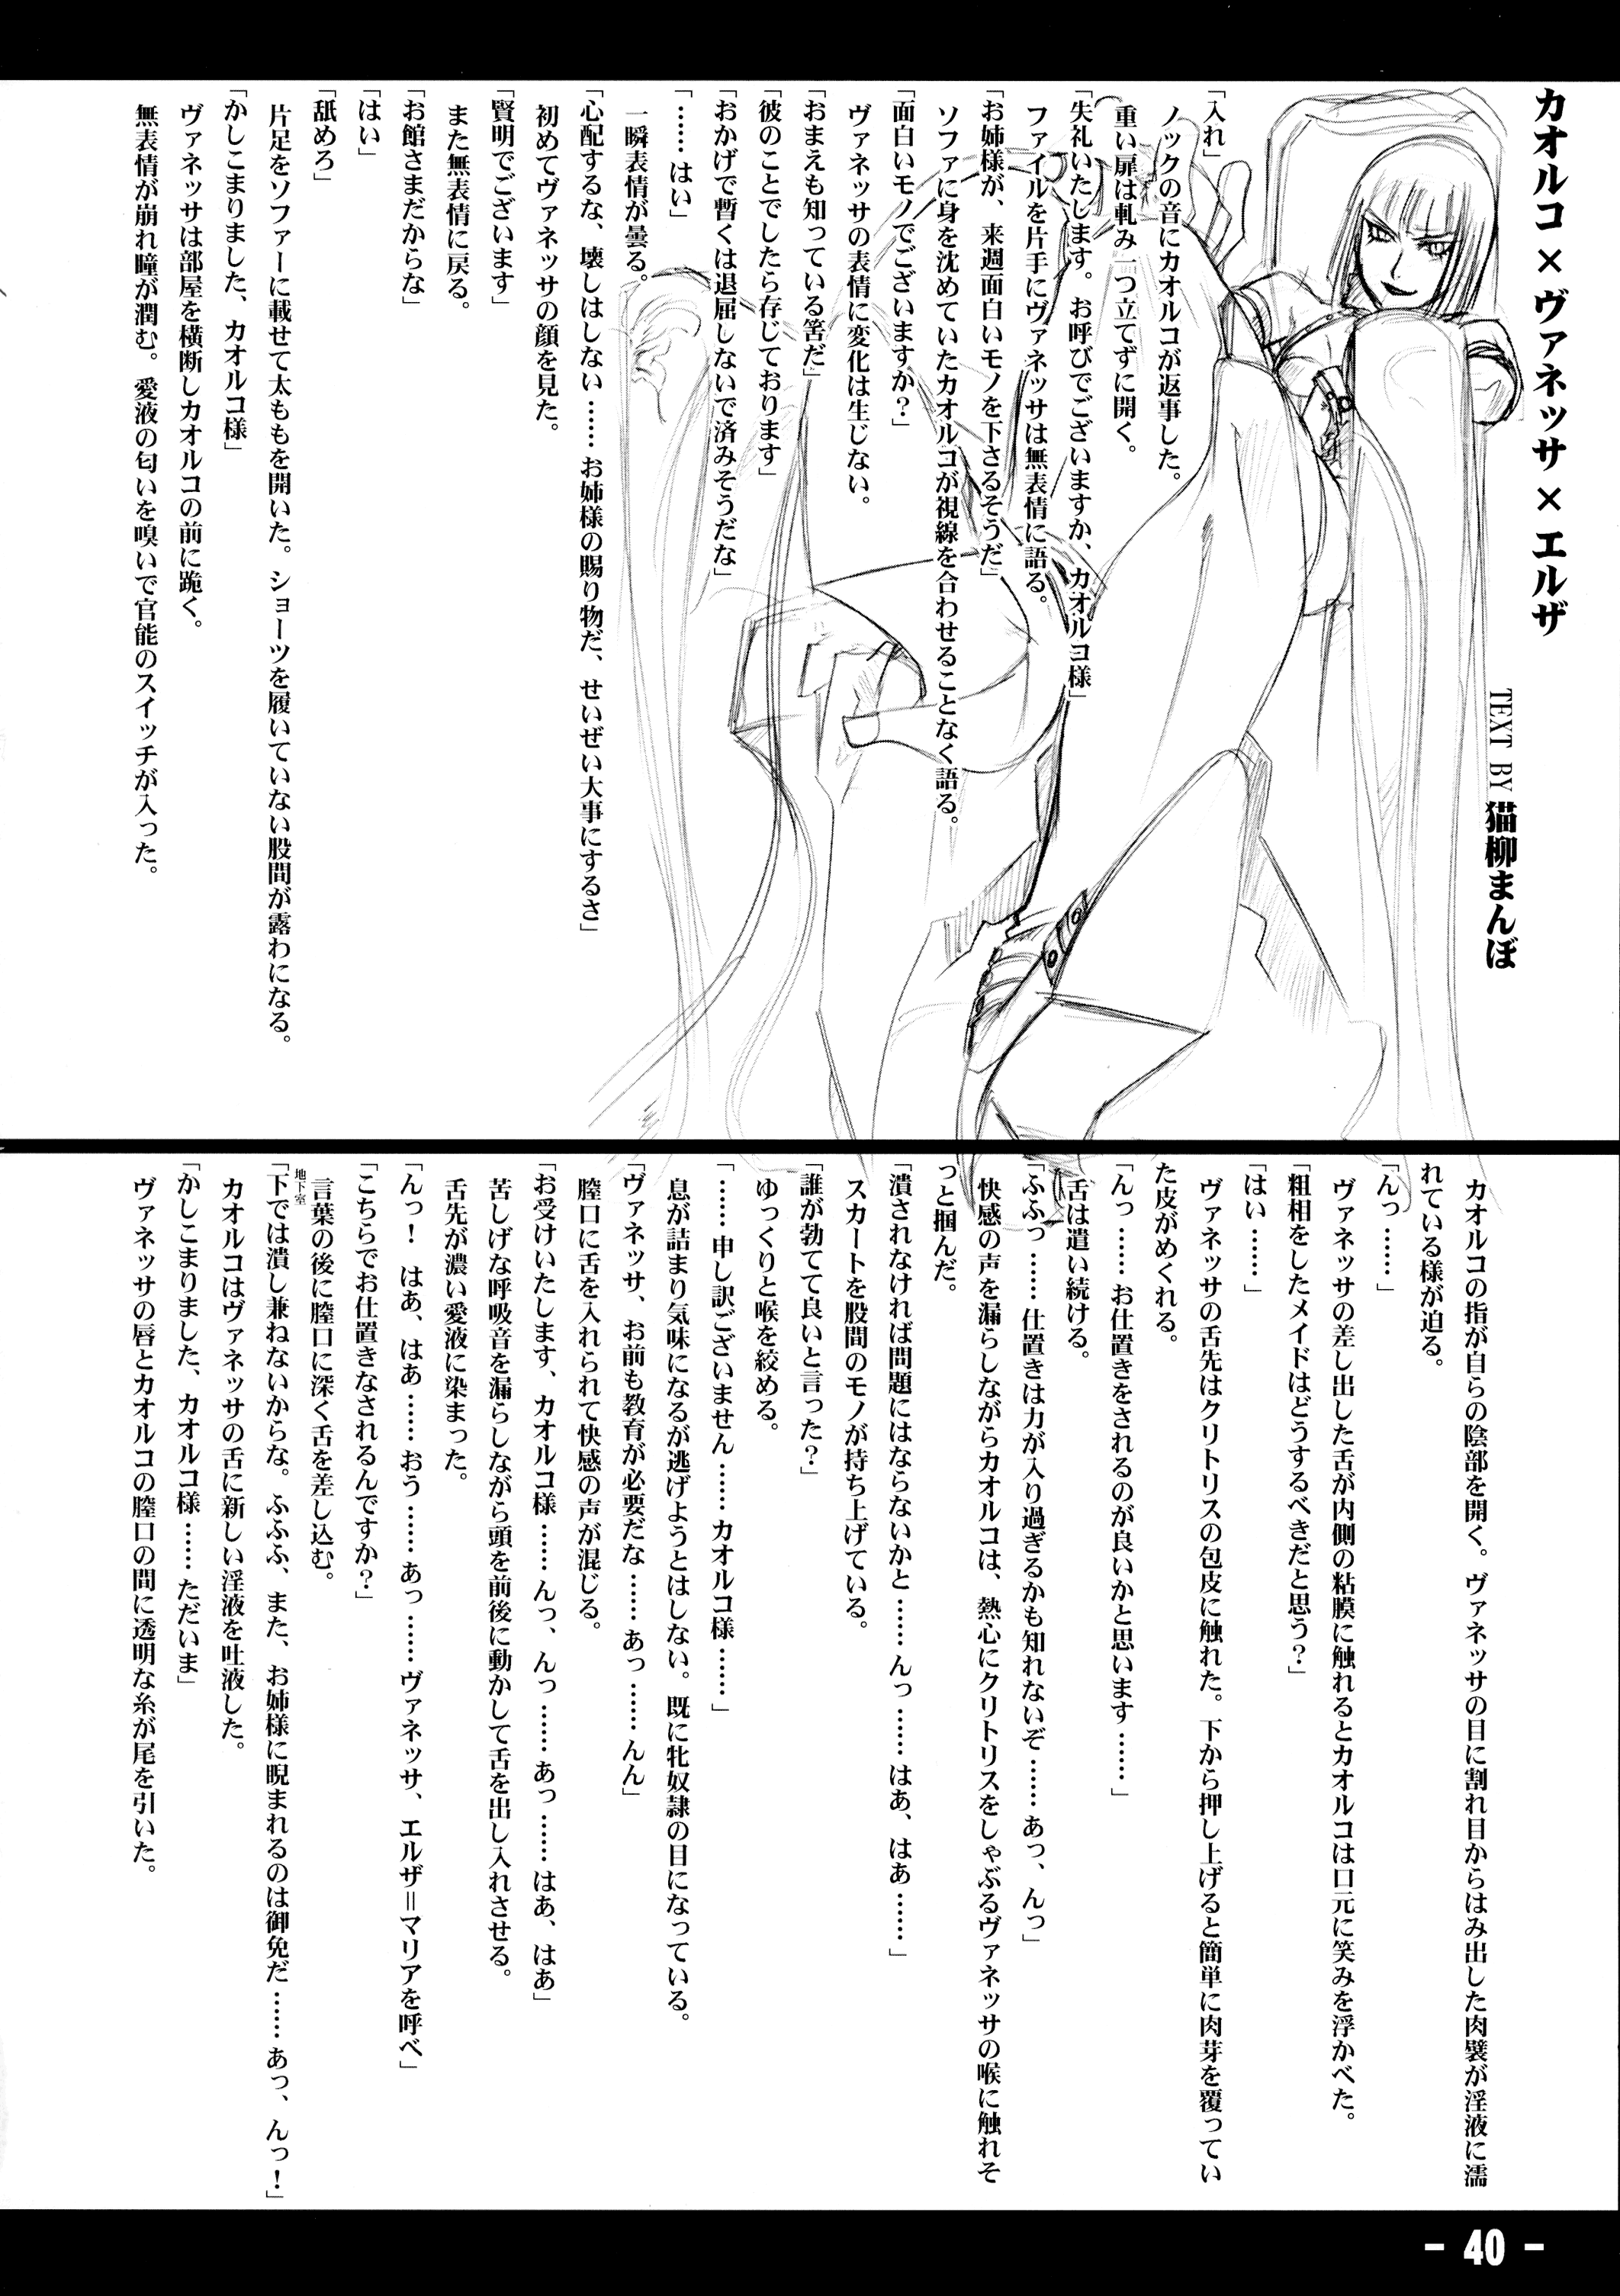 カオルコ×ヴァネッサ×エルザ
TEXT BY 猫柳まんぼ
「入れ」
ノックの音にカオルコが返事した。
重い扉は軋み一つ立てずに開く。
「失礼いたします。お呼びでございますか、カオルコ様」
ファイルを片手にヴァネッサは無表情に語る。
「お姉様が、来週面白いモノを下さるそうだ」
ソファに身を沈めていたカオルコが視線を合わせることなく語る。
「面白いモノでございますか？」
ヴァネッサの表情に変化は生じない。
「おまえも知っている筈だ」
「彼のことでしたら存じております」
「おかげで暫くは退屈しないで済みそうだな」
「……はい」
一瞬表情が曇る。
「心配するな、壊しはしない……お姉様の賜り物だ、せいぜい大事にするさ」
初めてヴァネッサの顔を見た。
「賢明でございます」
また無表情に戻る。
「お館さまだからな」
「はい」
「舐めろ」
片足をソファーに載せて太ももを開いた。ショーツを履いていない股間が露わになる。
「かしこまりました、カオルコ様」
ヴァネッサは部屋を横断しカオルコの前に跪く。
無表情が崩れ瞳が潤む。愛液の匂いを嗅いで官能のスイッチが入った。
カオルコの指が自らの陰部を開く。ヴァネッサの目に割れ目からはみ出した肉襞が淫液に濡
れている様が迫る。
「んっ……」
ヴァネッサの差し出した舌が内側の粘膜に触れるとカオルコは口元に笑みを浮かべた。
「粗相をしたメイドはどうするべきだと思う？」
「はい……」
ヴァネッサの舌先はクリトリスの包皮に触れた。下から押し上げると簡単に肉芽を覆ってい
た皮がめくれる。
「んっ……お仕置きをされるのが良いかと思います……」
舌は遣い続ける。
「ふふっ……仕置きは力が入り過ぎるかも知れないぞ……あっ、んっ」
快感の声を漏らしながらカオルコは、熱心にクリトリスをしゃぶるヴァネッサの喉に触れそ
っと掴んだ。
「潰されなければ問題にはならないかと……んっ……はあ、はあ……」
スカートを股間のモノが持ち上げている。
「誰が勃てて良いと言った？」
ゆっくりと喉を絞める。
「……申し訳ございません……カオルコ様……」
息が詰まり気味になるが逃げようとはしない。既に牝奴隷の目になっている。
「ヴァネッサ、お前も教育が必要だな……あっ……んん」
膣口に舌を入れられて快感の声が混じる。
「お受けいたします、カオルコ様……んっ、んっ……あっ……はあ、はあ」
苦しげな呼吸音を漏らしながら頭を前後に動かして舌を出し入れさせる。
舌先が濃い愛液に染まった。
「んっ！　はあ、はあ……おう……あっ……ヴァネッサ、エルザ＝マリアを呼べ」
「こちらでお仕置きなされるんですか？」
言葉の後に膣口に深く舌を差し込む。
地下室
「下では潰し兼ねないからな。ふふふ、また、お姉様に睨まれるのは御免だ……あっ、んっ！」
カオルコはヴァネッサの舌に新しい淫液を吐液した。
「かしこまりました、カオルコ様……ただいま」
ヴァネッサの唇とカオルコの膣口の間に透明な糸が尾を引いた。
- 40 -